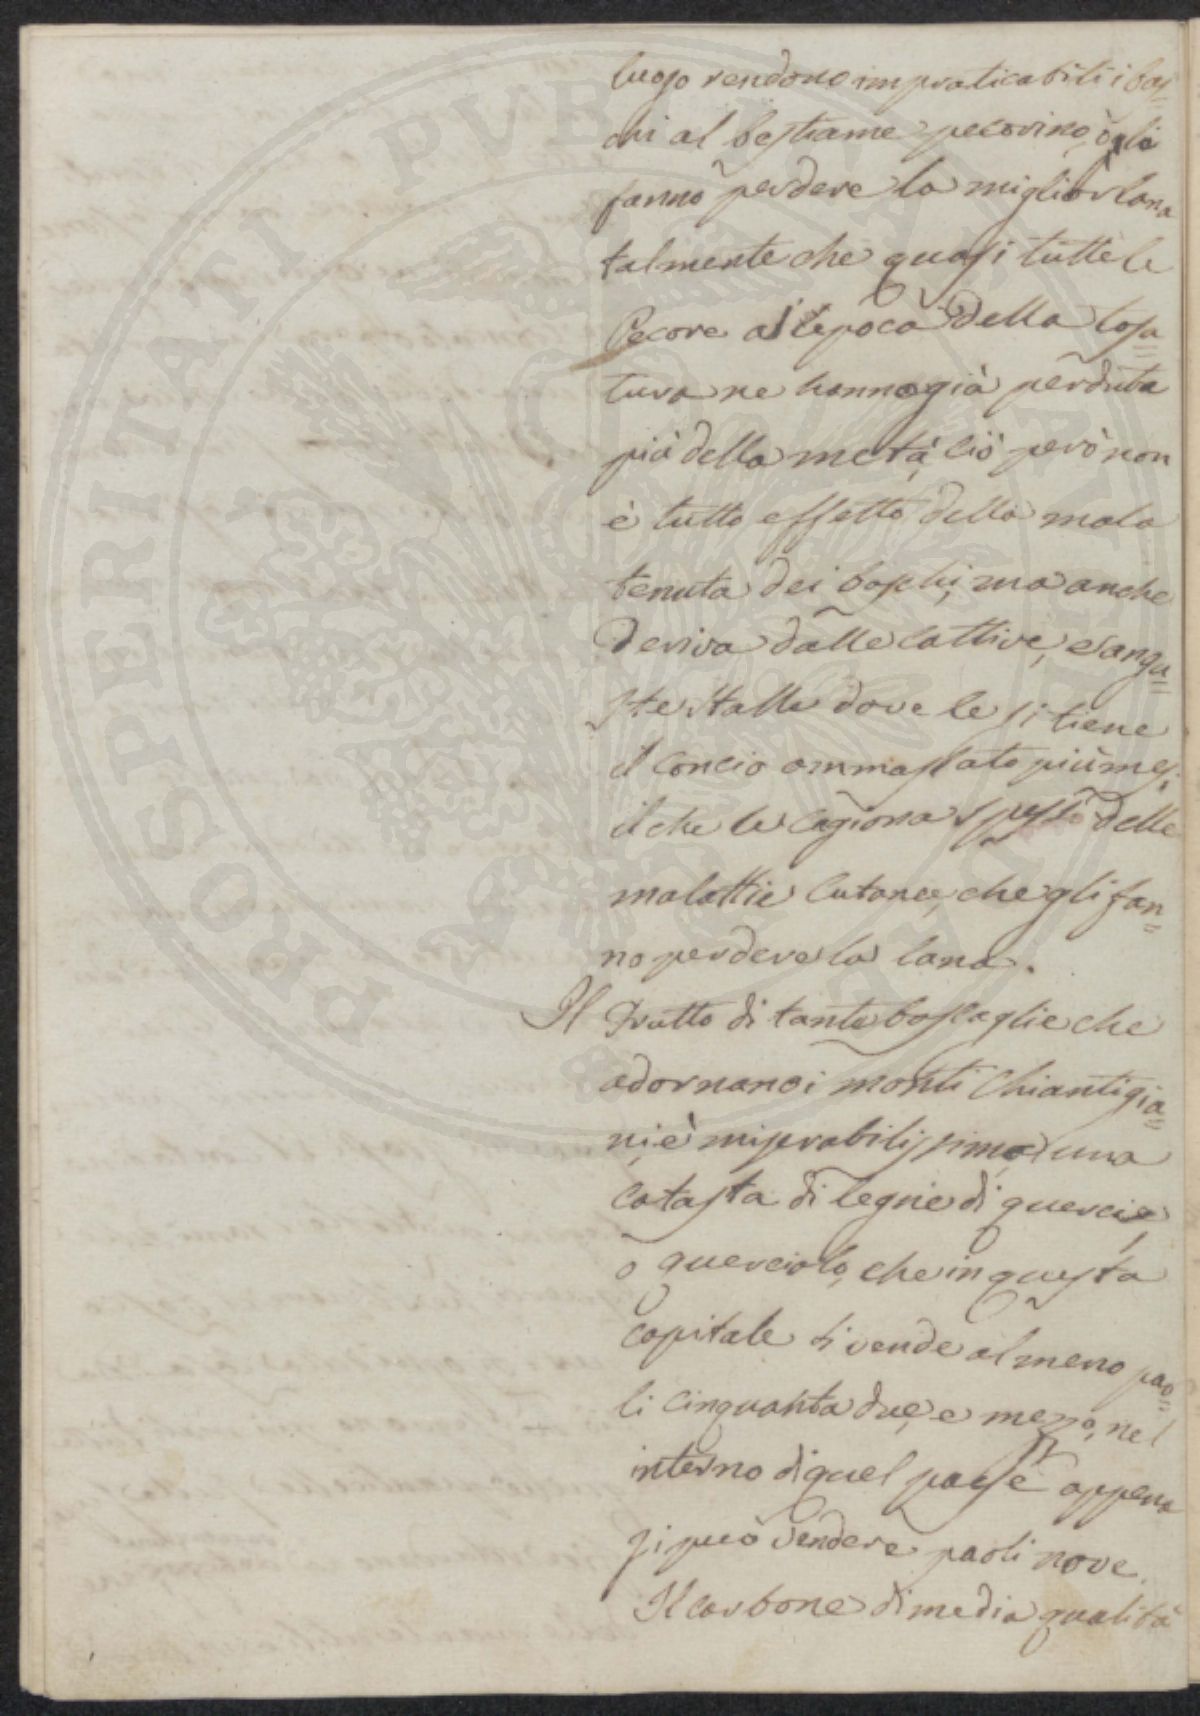 luogo rendono impraticabili i bos=
chi al bestiame pecorino, o gli
fanno perdere la miglior lana
talmente che quasi tutte le
Pecore all'epoca della tosa=
tura ne hanno già perduta
più della metà, ciò però non
è tutto effetto della mala
tenuta dei boschi, ma anche
deriva dalle cattive, e angu=
ste stalle dove le si tiene
il concio ammassato più mesi,
il che le cagiona spesso delle
malattie cutanee, che gli fan=
no perdere la lana.
Il frutto di tante boscaglie che
adornano i monti Chiantigia=
ni, è miserabilissimo, una
catasta di legne di quercie,
o querciolo, che in questa
capitale si vende almeno pao=
li cinquanta due, e mezzo, nel
interno di quel paese appena
si può vendere paoli nove.
Il carbone di media qualità
PROSPERITATI PUBLICAE AUGENDAE